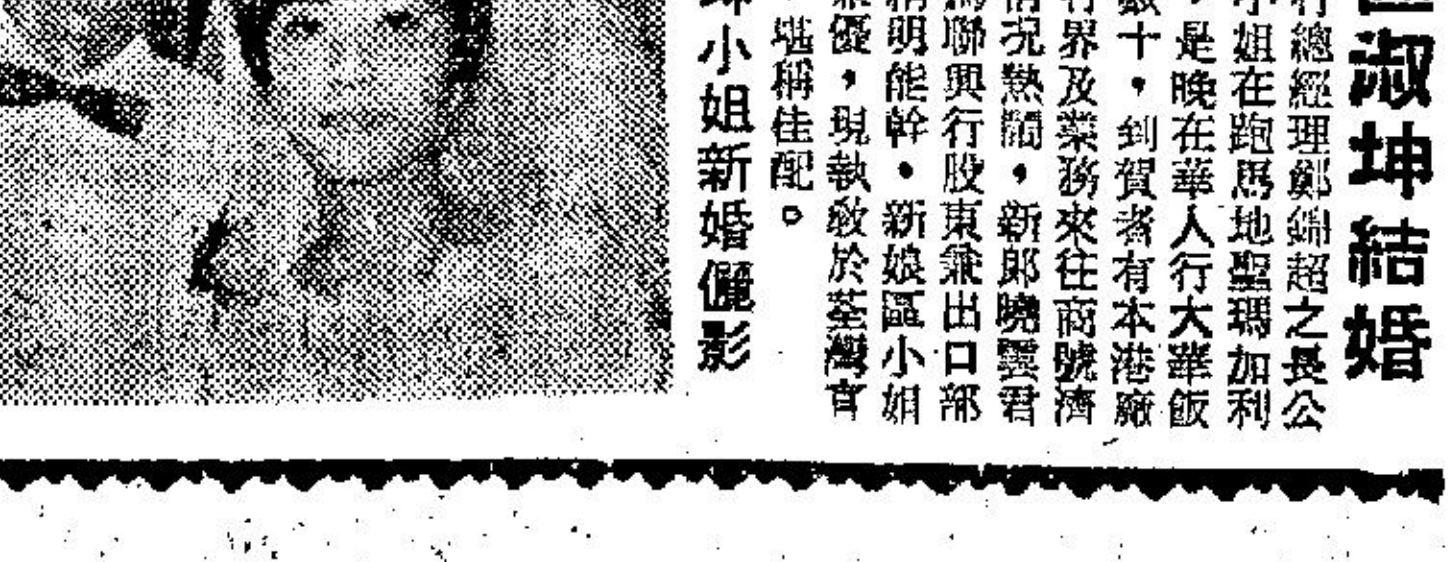 淑坤結婚
行總經理鄭錦超之長公
小姐在跑馬地聖瑪加利
，是晚在華人行大華飯
數十，到賀者有本港廠
行界及業務來往商號濟
情况熱鬧，新郎曉雲君
為聯興行股東兼出口部
精明能幹，新娘區小姐
優，現執敎於荃灣官
，堪稱佳配。
坤小姐新婚儷影